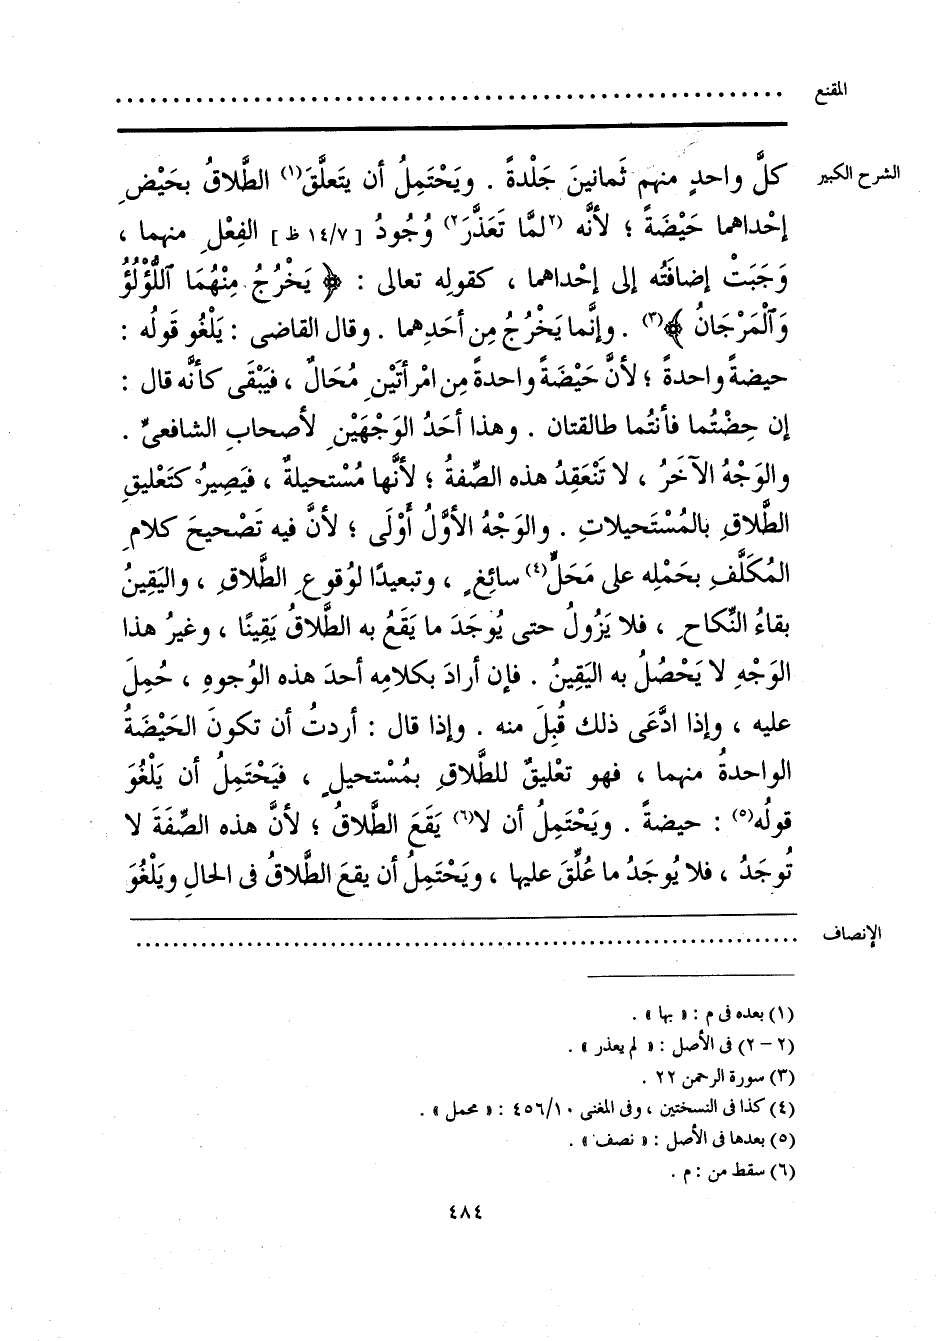 المقنع ........................................................
الشرح الكبير كلَّ واحدٍ منهم ثَمانينَ جَلْدةً . ويَحْتَمِلُ أن يتَعلَّقَ(١) الطَّلاقُ بحَيْضِ
إحْداهما حَيْضَةً ؛ لأنَّه (٢لمَّا تَعَذَّرَ٢) وُجُودُ [ ١٤/٧ ظ ] الفِعْلِ منهما ،
وَجَبَتْ إضافَتُه إلى إحْداهما ، كقولِه تعالى : ﴿ يَخْرُجُ مِنْهُمَا ٱللُّؤْلُؤُ
وَٱلْمَرْجَانُ ﴾(٣) . وإنَّما يَخْرُجُ مِن أحَدِهما . وقال القاضى : يَلْغُو قَولُه :
حيضةً واحدةً ؛ لأنَّ حَيْضَةً واحدةً مِن امْرأتَيْنِ مُحَالٌ ، فيَبْقَى كأنَّه قال :
إن حِضْتُما فأنتُما طالقتان . وهذا أحَدُ الوَجْهَيْنِ لأصحابِ الشافعىِّ .
والوَجْهُ الآخَرُ ، لا تَنْعَقِدُ هذه الصِّفةُ ؛ لأنَّها مُسْتحيلةٌ ، فيَصِيرُ كتَعْليقِ
الطَّلاقِ بالمُسْتَحيلاتِ . والوَجْهُ الأوَّلُ أَوْلَى ؛ لأنَّ فيه تَصْحيحَ كلامِ
المُكَلَّفِ بحَمْلِه على مَحَلٍّ(٤) سائغٍ ، وتبعيدًا لوُقوعِ الطَّلاقِ ، واليَقِينُ
بقاءُ النِّكاحِ ، فلا يَزُولُ حتى يُوجَدَ ما يَقَعُ به الطَّلاقُ يَقِينًا ، وغيرُ هذا
الوَجْهِ لا يَحْصُلُ به اليَقِينُ . فإن أرادَ بكلامِه أحدَ هذه الوُجوهِ ، حُمِلَ
عليه ، وإذا ادَّعَى ذلك قُبِلَ منه . وإذا قال : أردتُ أن تكونَ الحَيْضَةُ
الواحدةُ منهما ، فهو تعْليقٌ للطَّلاقِ بمُسْتحيلٍ ، فيَحْتَمِلُ أن يَلْغُوَ
قولُه(٥) : حيضةً . ويَحْتَمِلُ أن لا(٦) يَقَعَ الطَّلاقُ ؛ لأنَّ هذه الصِّفَةَ لا
تُوجَدُ ، فلا يُوجَدُ ما عُلِّقَ عليها ، ويَحْتَمِلُ أن يقعَ الطَّلاقُ فى الحالِ ويَلْغُوَ
الإنصاف ........................................................
(١) بعده فى م : « بها » .
(٢ – ٢) فى الأصل : « لم يعذر » .
(٣) سورة الرحمن ٢٢ .
(٤) كذا فى النسختين ، وفى المغنى ٤٥٦/١٠ : « محمل » .
(٥) بعدها فى الأصل : « نصف » .
(٦) سقط من : م .
٤٨٤